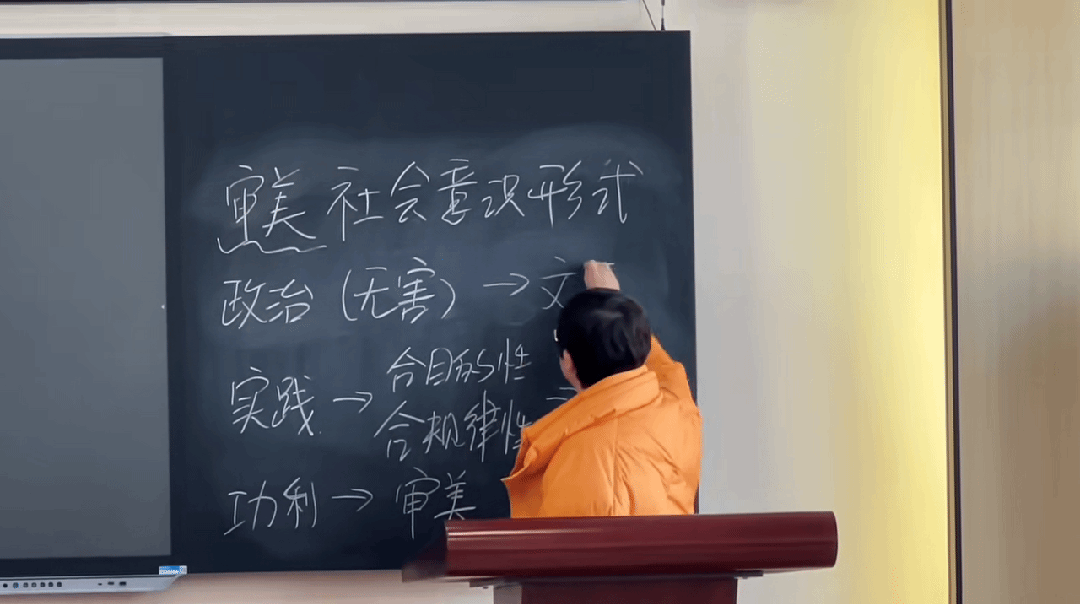 审美社会意识形式
政治(无害)→文
实践→合目的性
合规律性
功利→审美